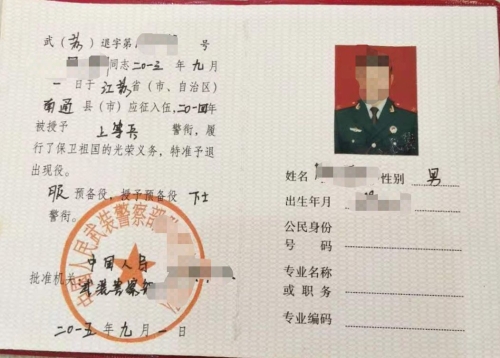 武（苏）退字第 号
同志二〇一三年九月
一日于江苏省（市、自治区）
南通县（市）应征入伍，二〇一四年
被授予 上等兵 警衔，履
行了保卫祖国的光荣义务，特准予退
出现役。
服预备役，授予预备役 下士
警衔。
中国人民武装警察部
批准机关 中国人民
武装警察
二〇一五年九月一日
姓名 性别 男
出生年月
公民身份
号码
专业名称
或职务
专业编码